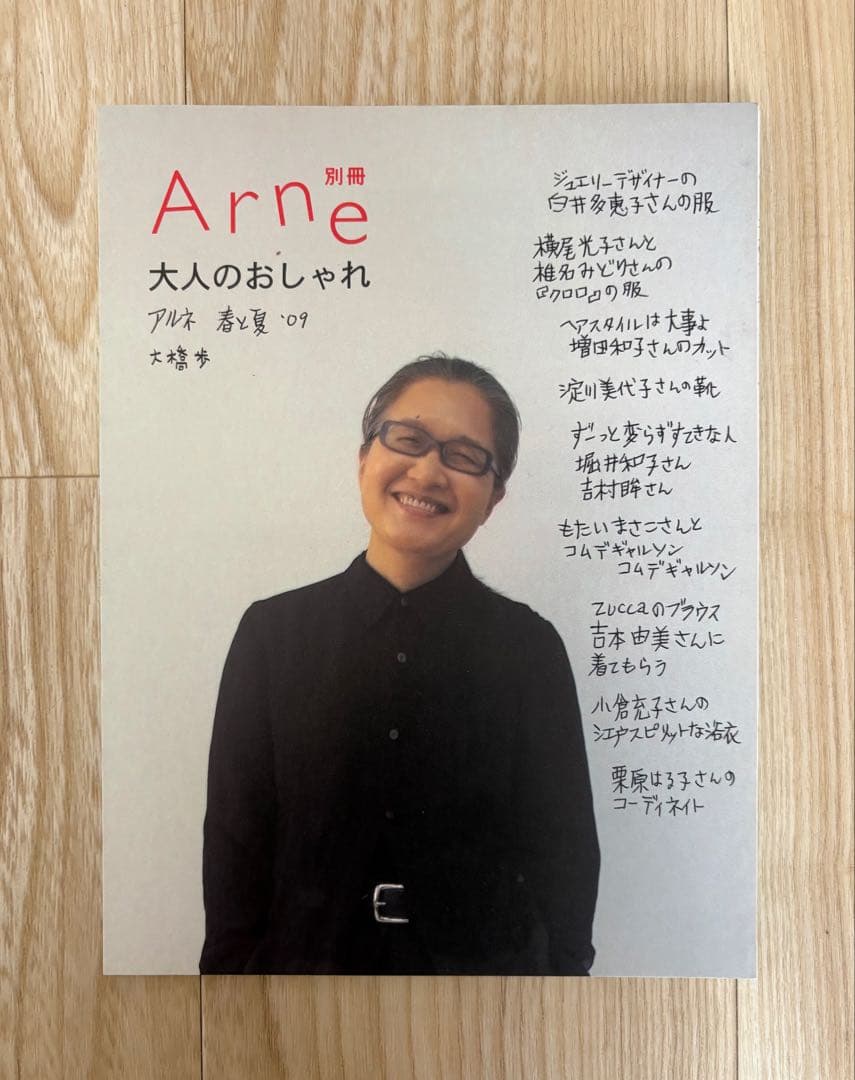 Arne
別冊
大人のおしゃれ
アルネ 春と夏 '09
大橋歩
ジュエリーデザイナーの
白井多恵子さんの服
横尾光子さんと
椎名みどりさんの
『クロロ』の服
ヘアスタイルは大事よ
増田和子さんのカット
淀川美代子さんの靴
ずーっと変らずすてきな人
堀井和子さん
吉村眸さん
もたいまさこさんと
コムデギャルソン
コムデギャルソン
zuccaのブラウス
吉本由美さんに
着てもらう
小倉充子さんの
江戸スピリットな浴衣
栗原はる子さんの
コーディネイト